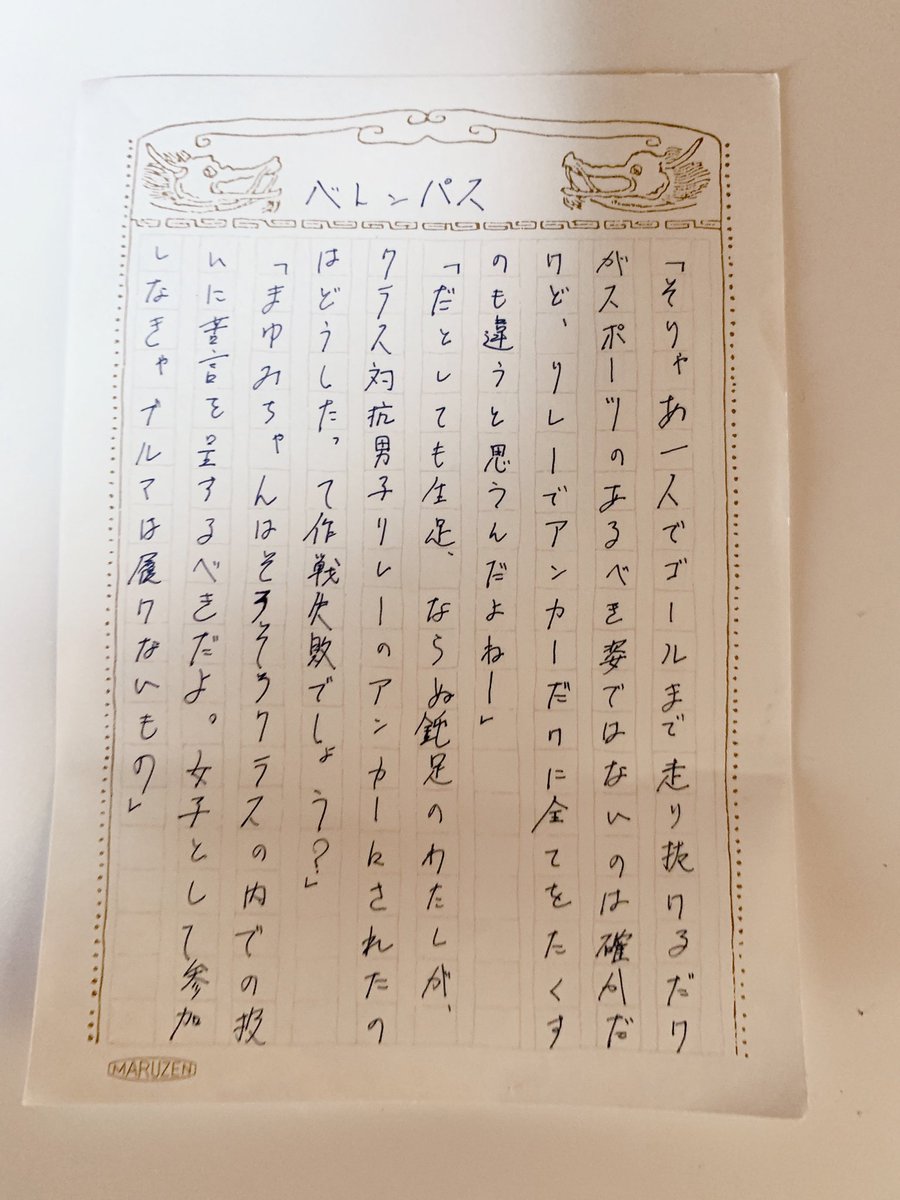 ベトンパス
「そりゃあ一人でゴールまで走り抜けるだけ
がスポーツのあるべき姿ではないのは確かだ
けど、リレーでアンカーだけに全てをたくす
のも違うと思うんだよねー」
「だとしても生足、ならぬ鈍足のわたしが、
クラス対抗男子リレーのアンカーにされたの
はどうしたって作戦失敗でしょう？」
「まゆみちゃんはそろそろクラスの内での扱
いに苦言を呈するべきだよ。女子として参加
しなきゃブルマは履けないもの」
MARUZEN